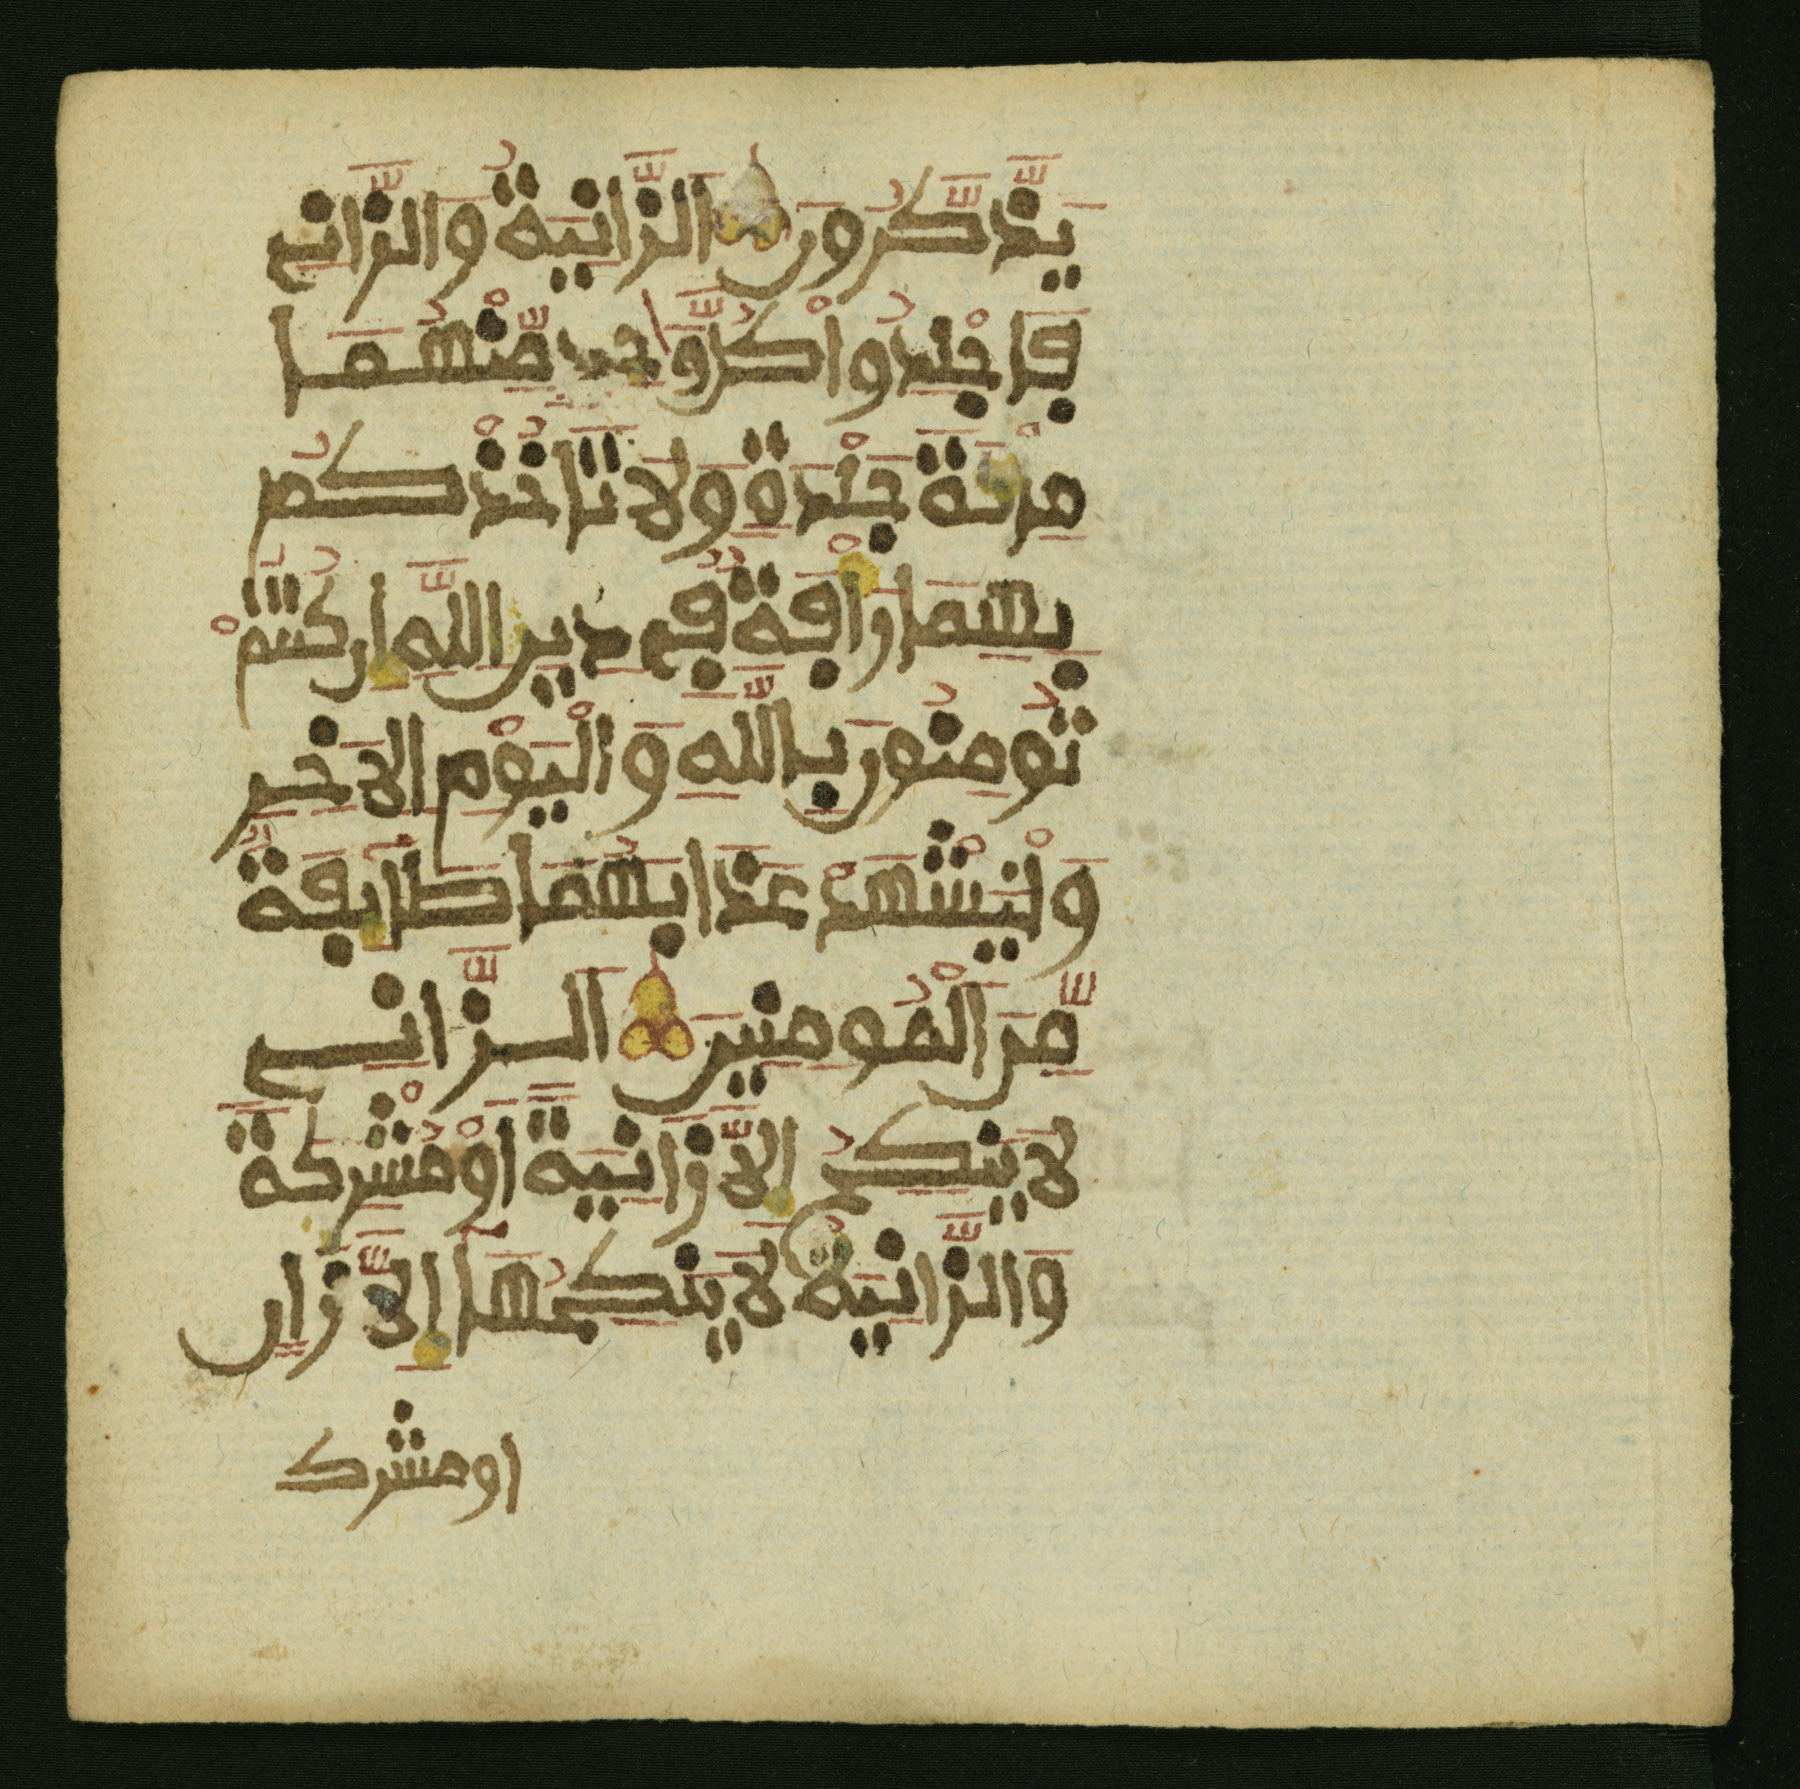 يَذَّكَّرُونَ الزَّانِيَةُ وَالزَّانِے
فَاجْلِدُواْ كُلَّ وَٰحِدٍ مِّنْهُمَا
مِاْئَةَ جَلْدَةٍ وَلَا تَاخُذْكُم
بِهِمَا رَأْفَةٌ فِے دِينِ اللَّهِ إِن كُنتُمْ
تُومِنُونَ بِاللَّهِ وَالْيَوْمِ الَاخِرِ
وَلْيَشْهَدْ عَذَابَهُمَا طَآئِفَةٌ
مِّنَ الْمُومِنِينَ الزَّانِے
لَا يَنكِحُ إِلَّا زَانِيَةً اَوْ مُشْرِكَةً
وَالزَّانِيَةُ لَا يَنكِحُهَآ إِلَّا زَانٍ
او مشرك